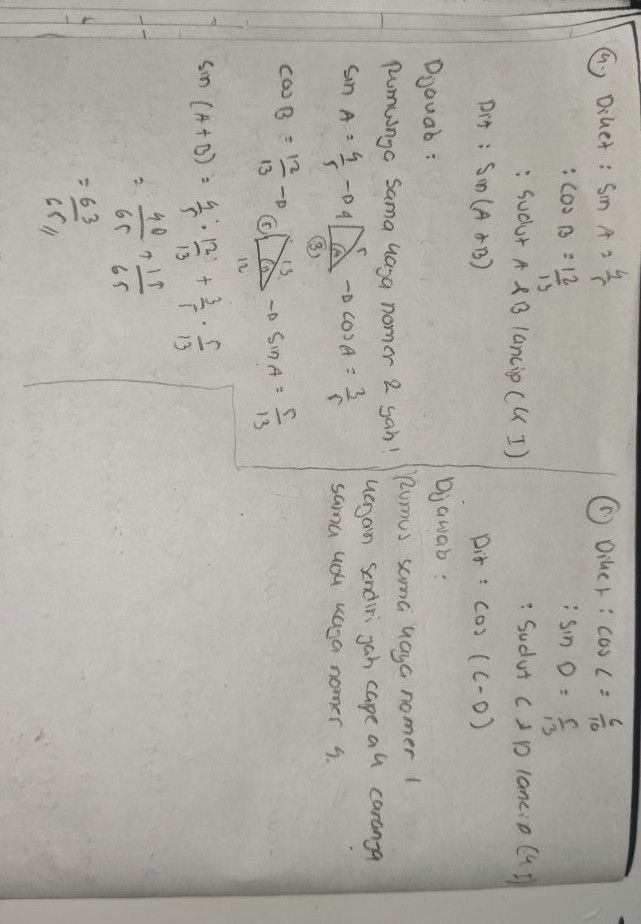 4.) Diket : Sin A = 4/5
: cos B = 12/13
: Sudut A & B lancip (K I)
Dit : Sin (A + B)
Dijawab :
Rumusnya sama kaya nomer 2 yah!
sin A = 4/5 → 4 5 A (3) → cos A = 3/5
cos B = 12/13 → (5) 13 12 → sin A = 5/13
sin (A+B) = 4/5 . 12/13 + 3/5 . 5/13
= 48/65 + 15/65
= 63/65 //
5.) Diket : cos C = 6/10
: sin D = 5/13
: Sudut C & D lancip (K I)
Dit : cos (C - D)
Dijawab :
Rumus sama kaya nomer 1
kerjain sendiri yah cape ak caranya
sama kaya nomer 4.